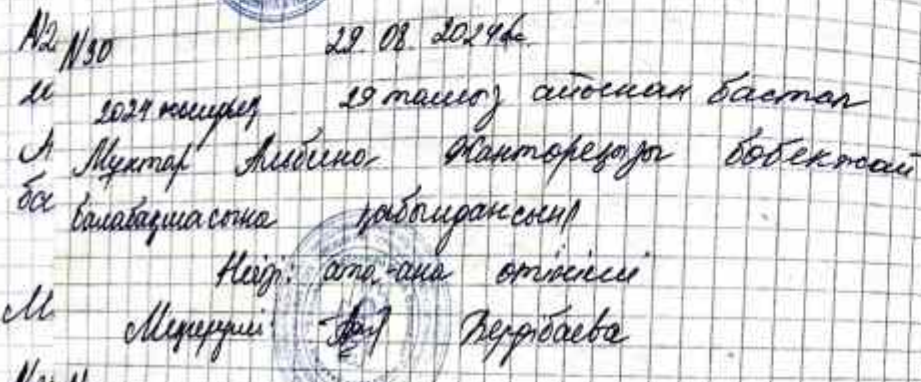 №30 29.08.2024ж.
2024 жылдың 29 тамыз айынан бастап
Мұхтар Альбина Жантореқызы бөбекжай
балабақшасына қабылдансын
Негізі: ата-ана өтініші
Меңгеруші Бердібаева